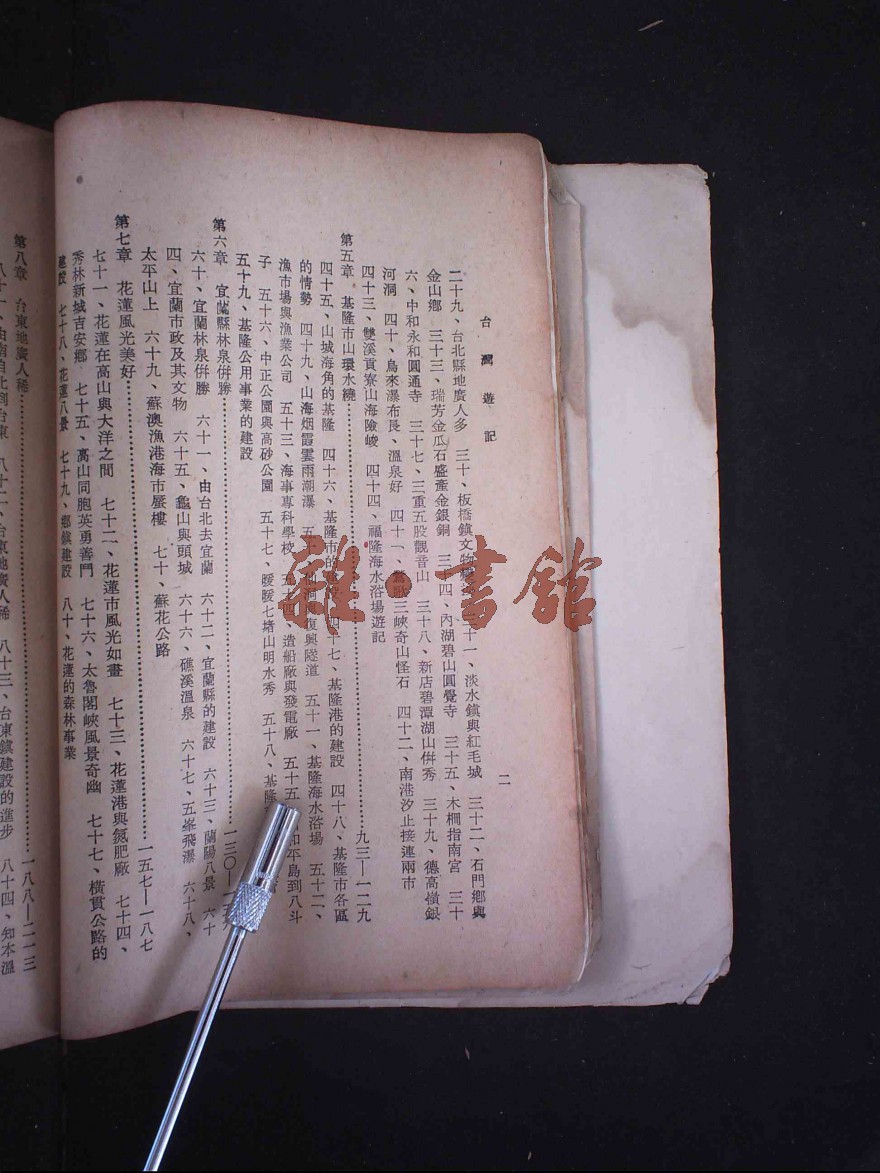 台灣遊記
二
二十九、台北縣地廣人多　三十、板橋鎮文物　三十一、淡水鎮與紅毛城　三十二、石門鄉與
金山鄉　三十三、瑞芳金瓜石盛產金銀銅　三十四、內湖碧山圓覺寺　三十五、木柵指南宮　三十
六、中和永和圓通寺　三十七、三重五股觀音山　三十八、新店碧潭湖山倂秀　三十九、德高嶺銀
河洞　四十、烏來瀑布長、溫泉好　四十一、鶯歌三峽奇山怪石　四十二、南港汐止接連兩市
四十三、雙溪貢寮山海險峻　四十四、福隆海水浴場遊記
第五章　基隆市山環水繞……九三—一二九
四十五、山城海角的基隆　四十六、基隆市的　四十七、基隆港的建設　四十八、基隆市各區
的情勢　四十九、山海烟霞雲雨潮瀑　五十　洞　復興隧道　五十一、基隆海水浴場　五十二、
漁市場與漁業公司　五十三、海事專科學校　五十四、造船廠與發電廠　五十五　和平島到八斗
子　五十六、中正公園與高砂公園　五十七、暖暖七堵山明水秀　五十八、基隆
五十九、基隆公用事業的建設
第六章　宜蘭縣林泉倂勝……一三〇—一五六
六十、宜蘭林泉倂勝　六十一、由台北去宜蘭　六十二、宜蘭縣的建設　六十三、蘭陽八景　六十
四、宜蘭市政及其文物　六十五、龜山與頭城　六十六、礁溪溫泉　六十七、五峯飛瀑　六十八、
太平山上　六十九、蘇澳漁港海市蜃樓　七十、蘇花公路
第七章　花蓮風光美好……一五七—一八七
七十一、花蓮在高山與大洋之間　七十二、花蓮市風光如畫　七十三、花蓮港與氮肥廠　七十四、
秀林新城吉安鄉　七十五、高山同胞英勇善鬥　七十六、太魯閣峽風景奇幽　七十七、橫貫公路的
建設　七十八、花蓮八景　七十九、鄉鎮建設　八十、花蓮的森林事業
第八章　台東地廣人稀……一八八—二一三
八十一、由南自北到台東　八十二、台東地廣人稀　八十三、台東鎮建設的進步　八十四、知本溫
雜·書館